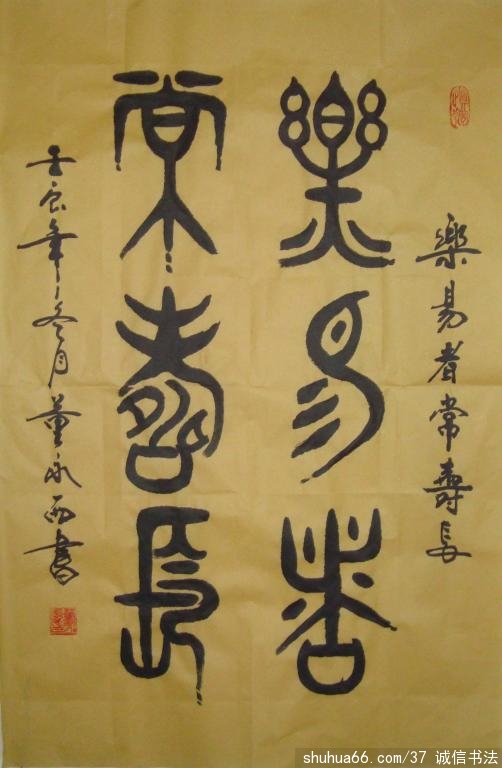 樂易者常壽長
樂易者
常壽長
壬辰年冬月董永西書
shuhua66.com/37 诚信书法